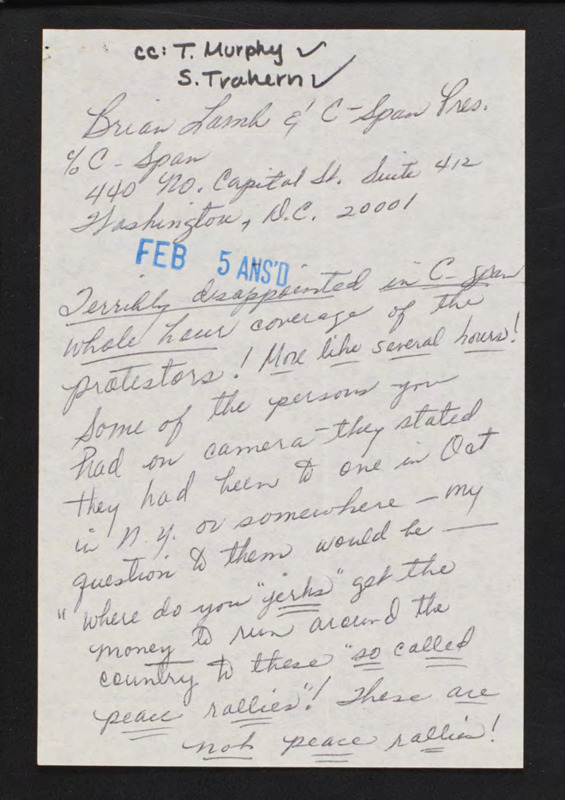 cc: T. Murphy ✓
S. Trahern ✓
Brian Lamb & C-Span Pres.
% C-Span
440 No. Capital St. Suite 412
Washington, D.C. 20001
FEB 5 ANS'D
Terribly disappointed in C-span
whole hour coverage of the
protestors! More like several hours!
Some of the persons you
had on camera - they stated
they had been to one in Oct
in N.Y. or somewhere - my
question to them would be —
"where do you "jerks" get the
money to run around the
country to these "so called
peace rallies"! These are
not peace rallies!